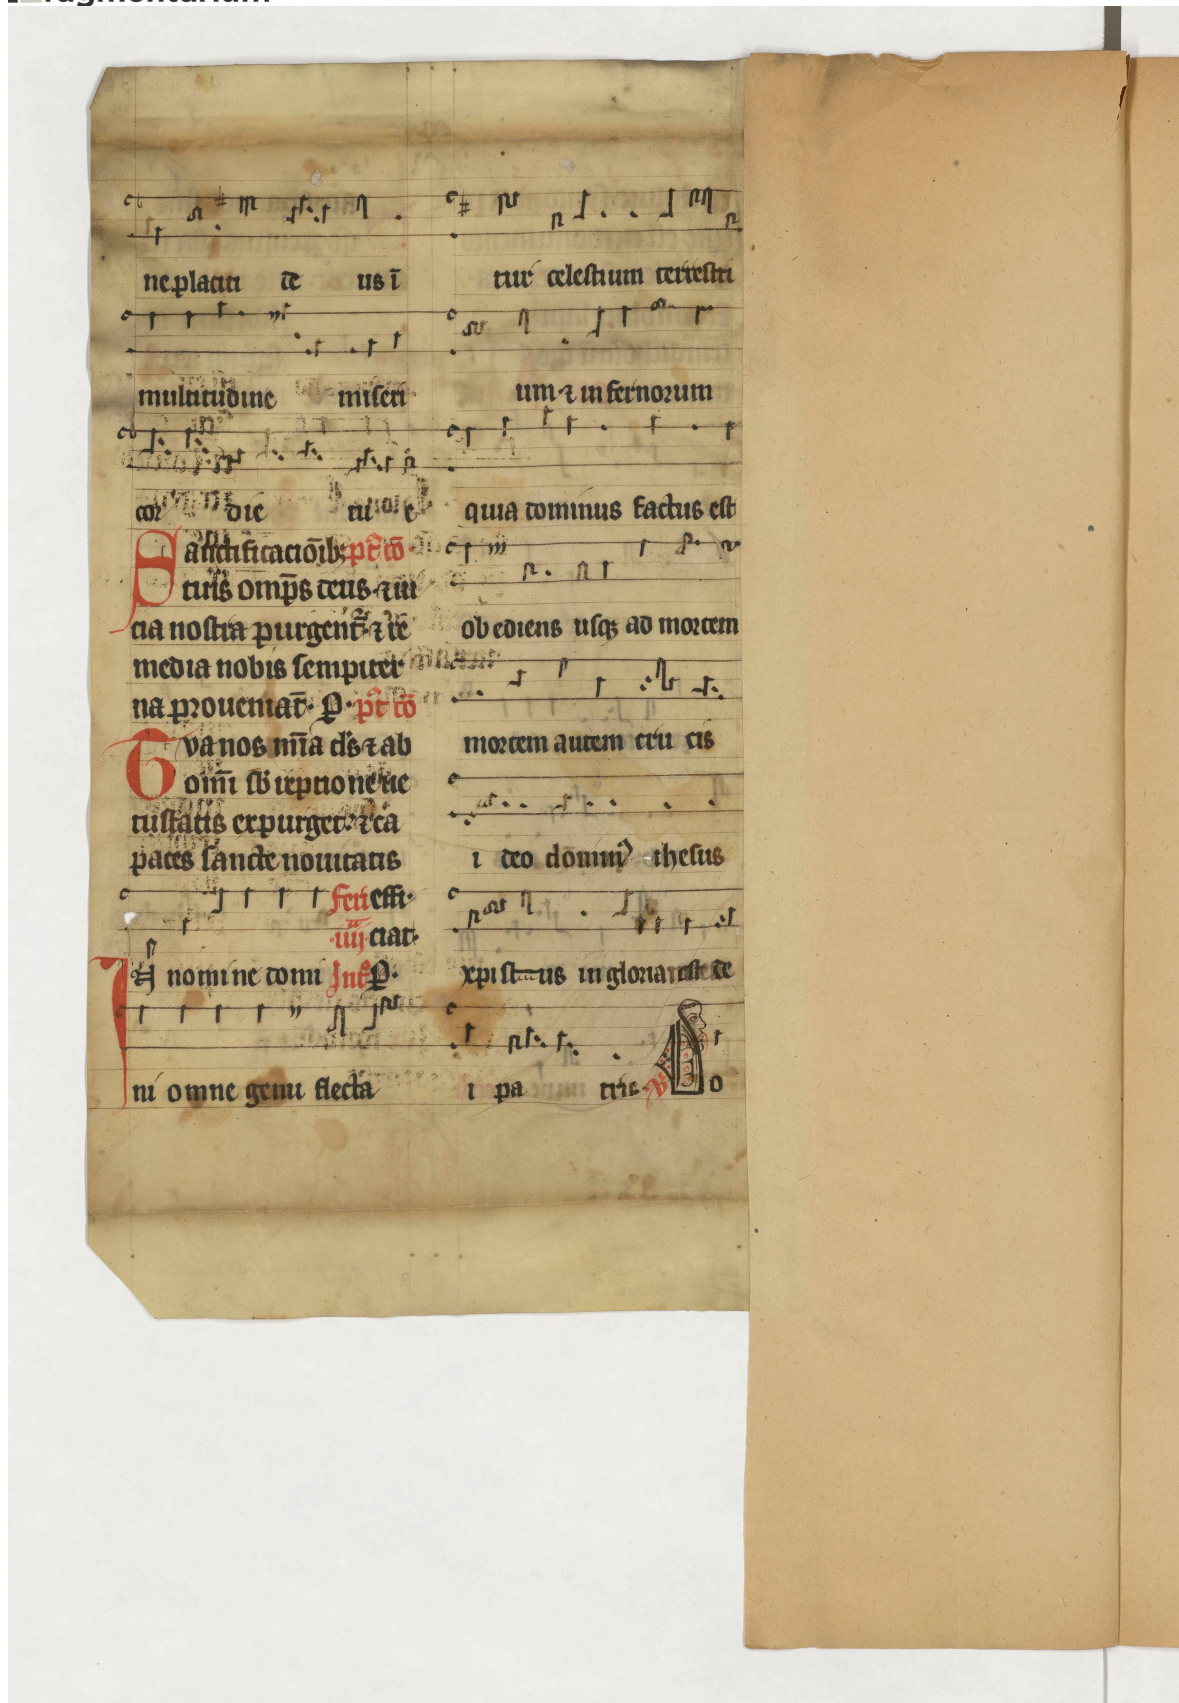 ne placiti de us ī
multitudine miseri
cor die tu e
Sanctificacioīb; pt̄ cō
tuis omp̄s deus ⁊ ui
cia nostra purgent ⁊ re
media nobis sempiter
na proueniat̄. P. pt̄ cō
Tua nos mīa ds̄ ⁊ ab
omī sb ireptione ue
tustatis expurget ⁊ ca
paces sancte nouitatis
feri effi
iiij ciat.
In nomine domi Int P.
ni omne genu flecta
tur celestium terrestri
um ⁊ infernorum
quia dominus factus est
obediens usq; ad mortem
mortem autem cru cis
i deo domin9 ihesus
xpistus in gloria est de
i pa tris. Do